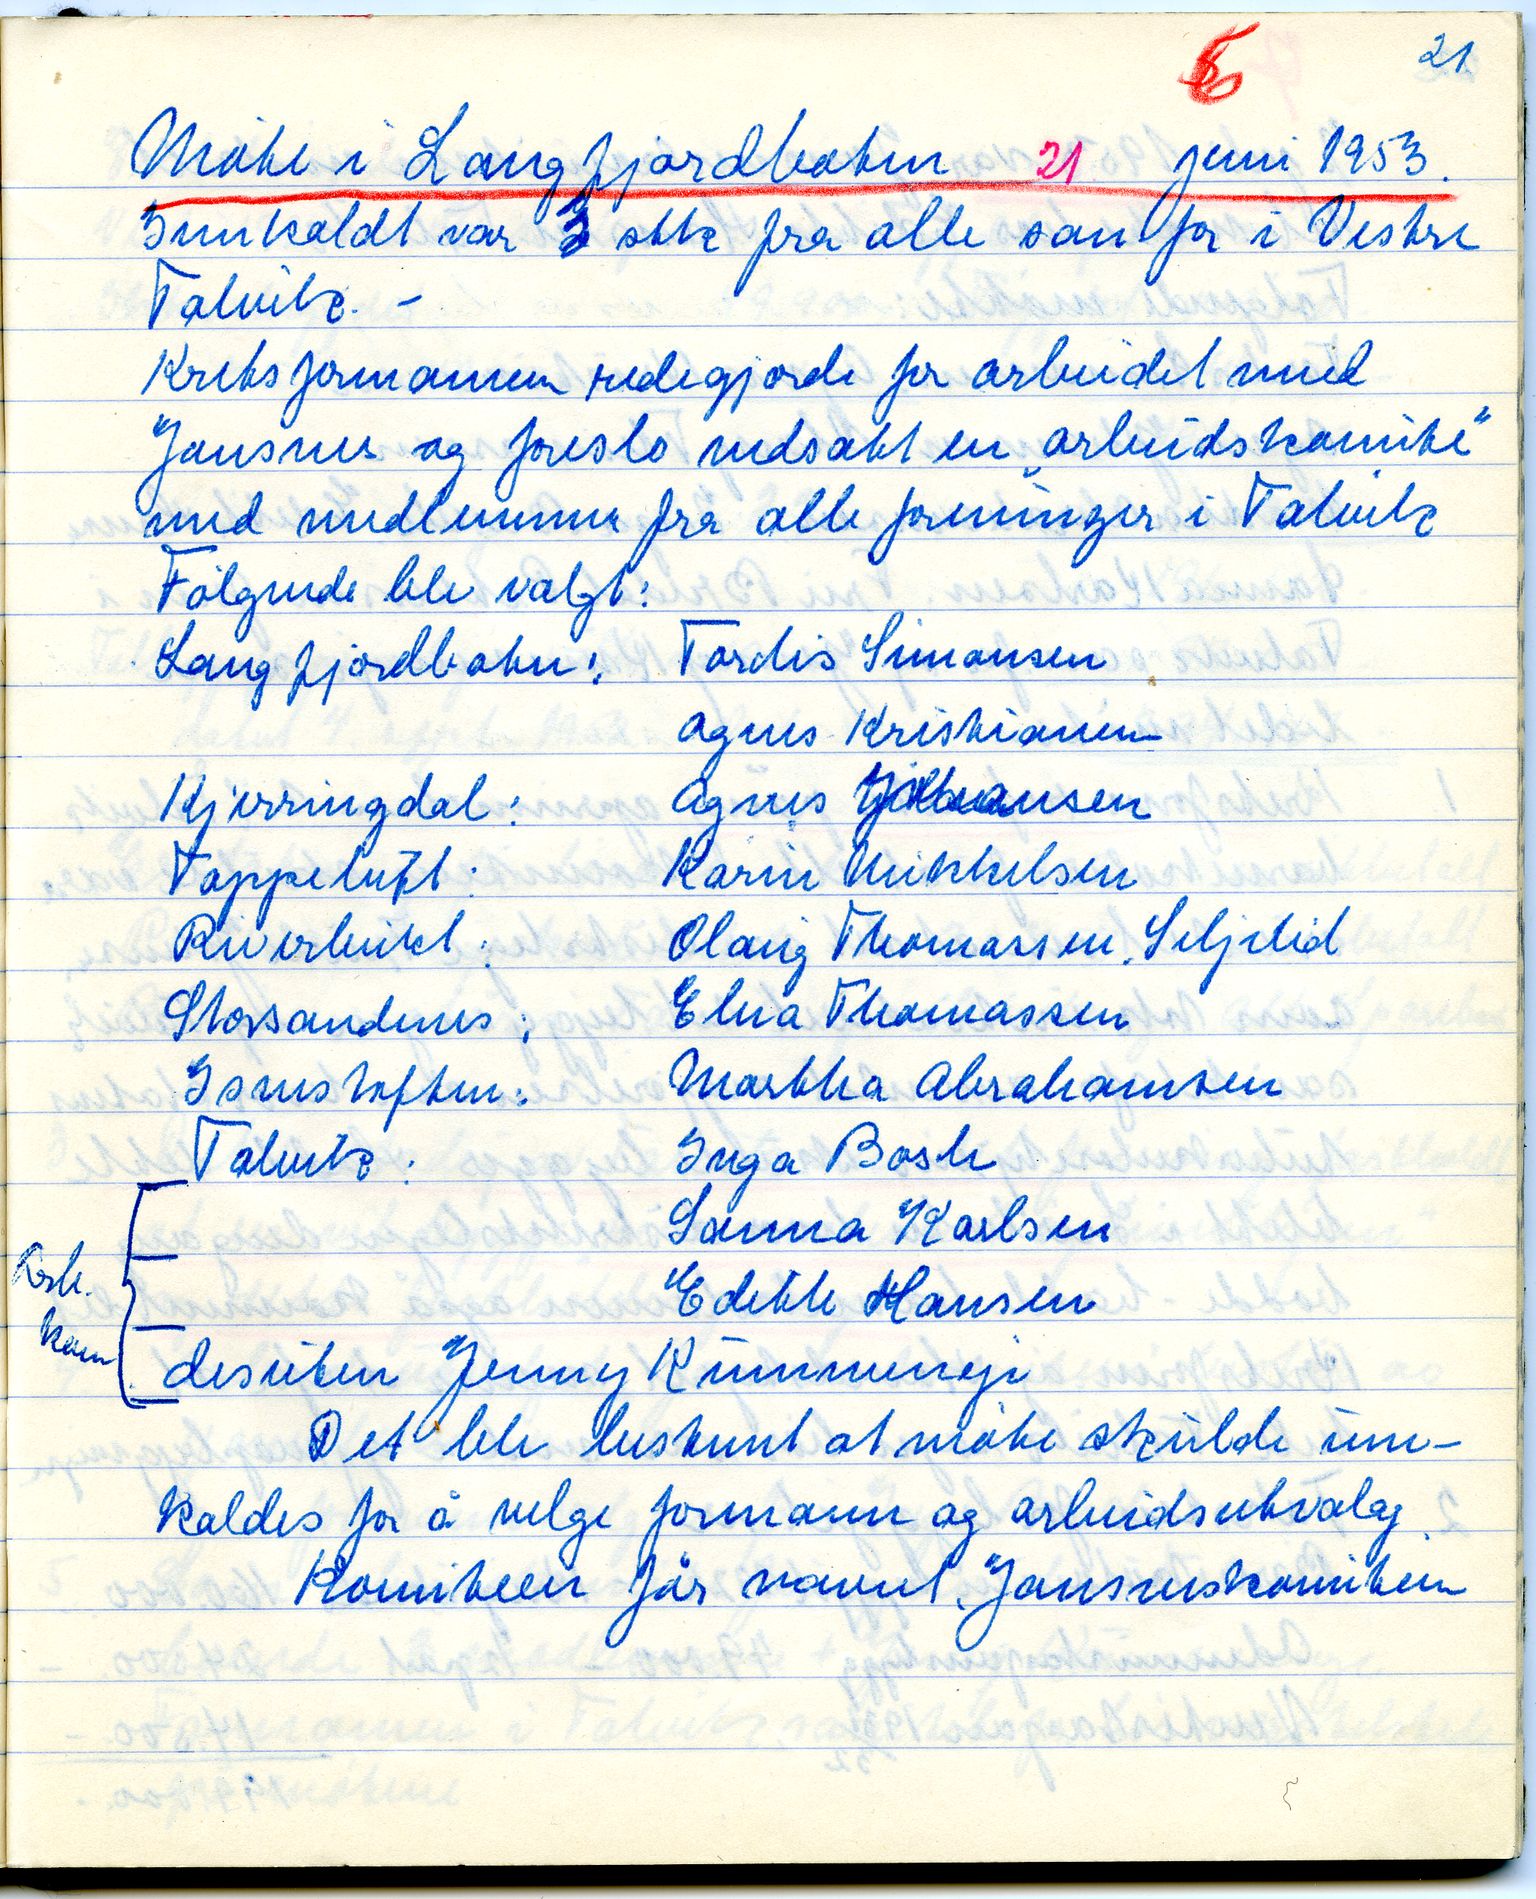 6 21
Möte i Langfjordbotn 21 juni 1953.
Innkaldt var 3 stk fra alle san for i Vestre
Talvik. -
Kretsformannen redegjorde for arbeidet med
"Jansnes og foreslo nedsatt en "arbeidskomite"
med medlemmer fra alle foreninger i Talvik
Følgende ble valgt:
Langfjordbotn: Tordis Simonsen
Agnes Kristiansen
Kjerringdal: Agnes Johansen
Toppeluft: Karin Mikkelsen
Riverbukt: Olaug Thomassen, Seljelid
Storsandnes: Elna Thomassen
Isnestoften: Martha Abrahamsen
Talvik: Inga Bosk
Sanna Karlsen
Edith Hansen
Arb. kom
desuten Jenny Kummeneje
Det ble bestemt at möte skulde inn-
kaldes for å velge formann og arbeidsutvalg.
Komiteen får navnet "Jansneskomiteen